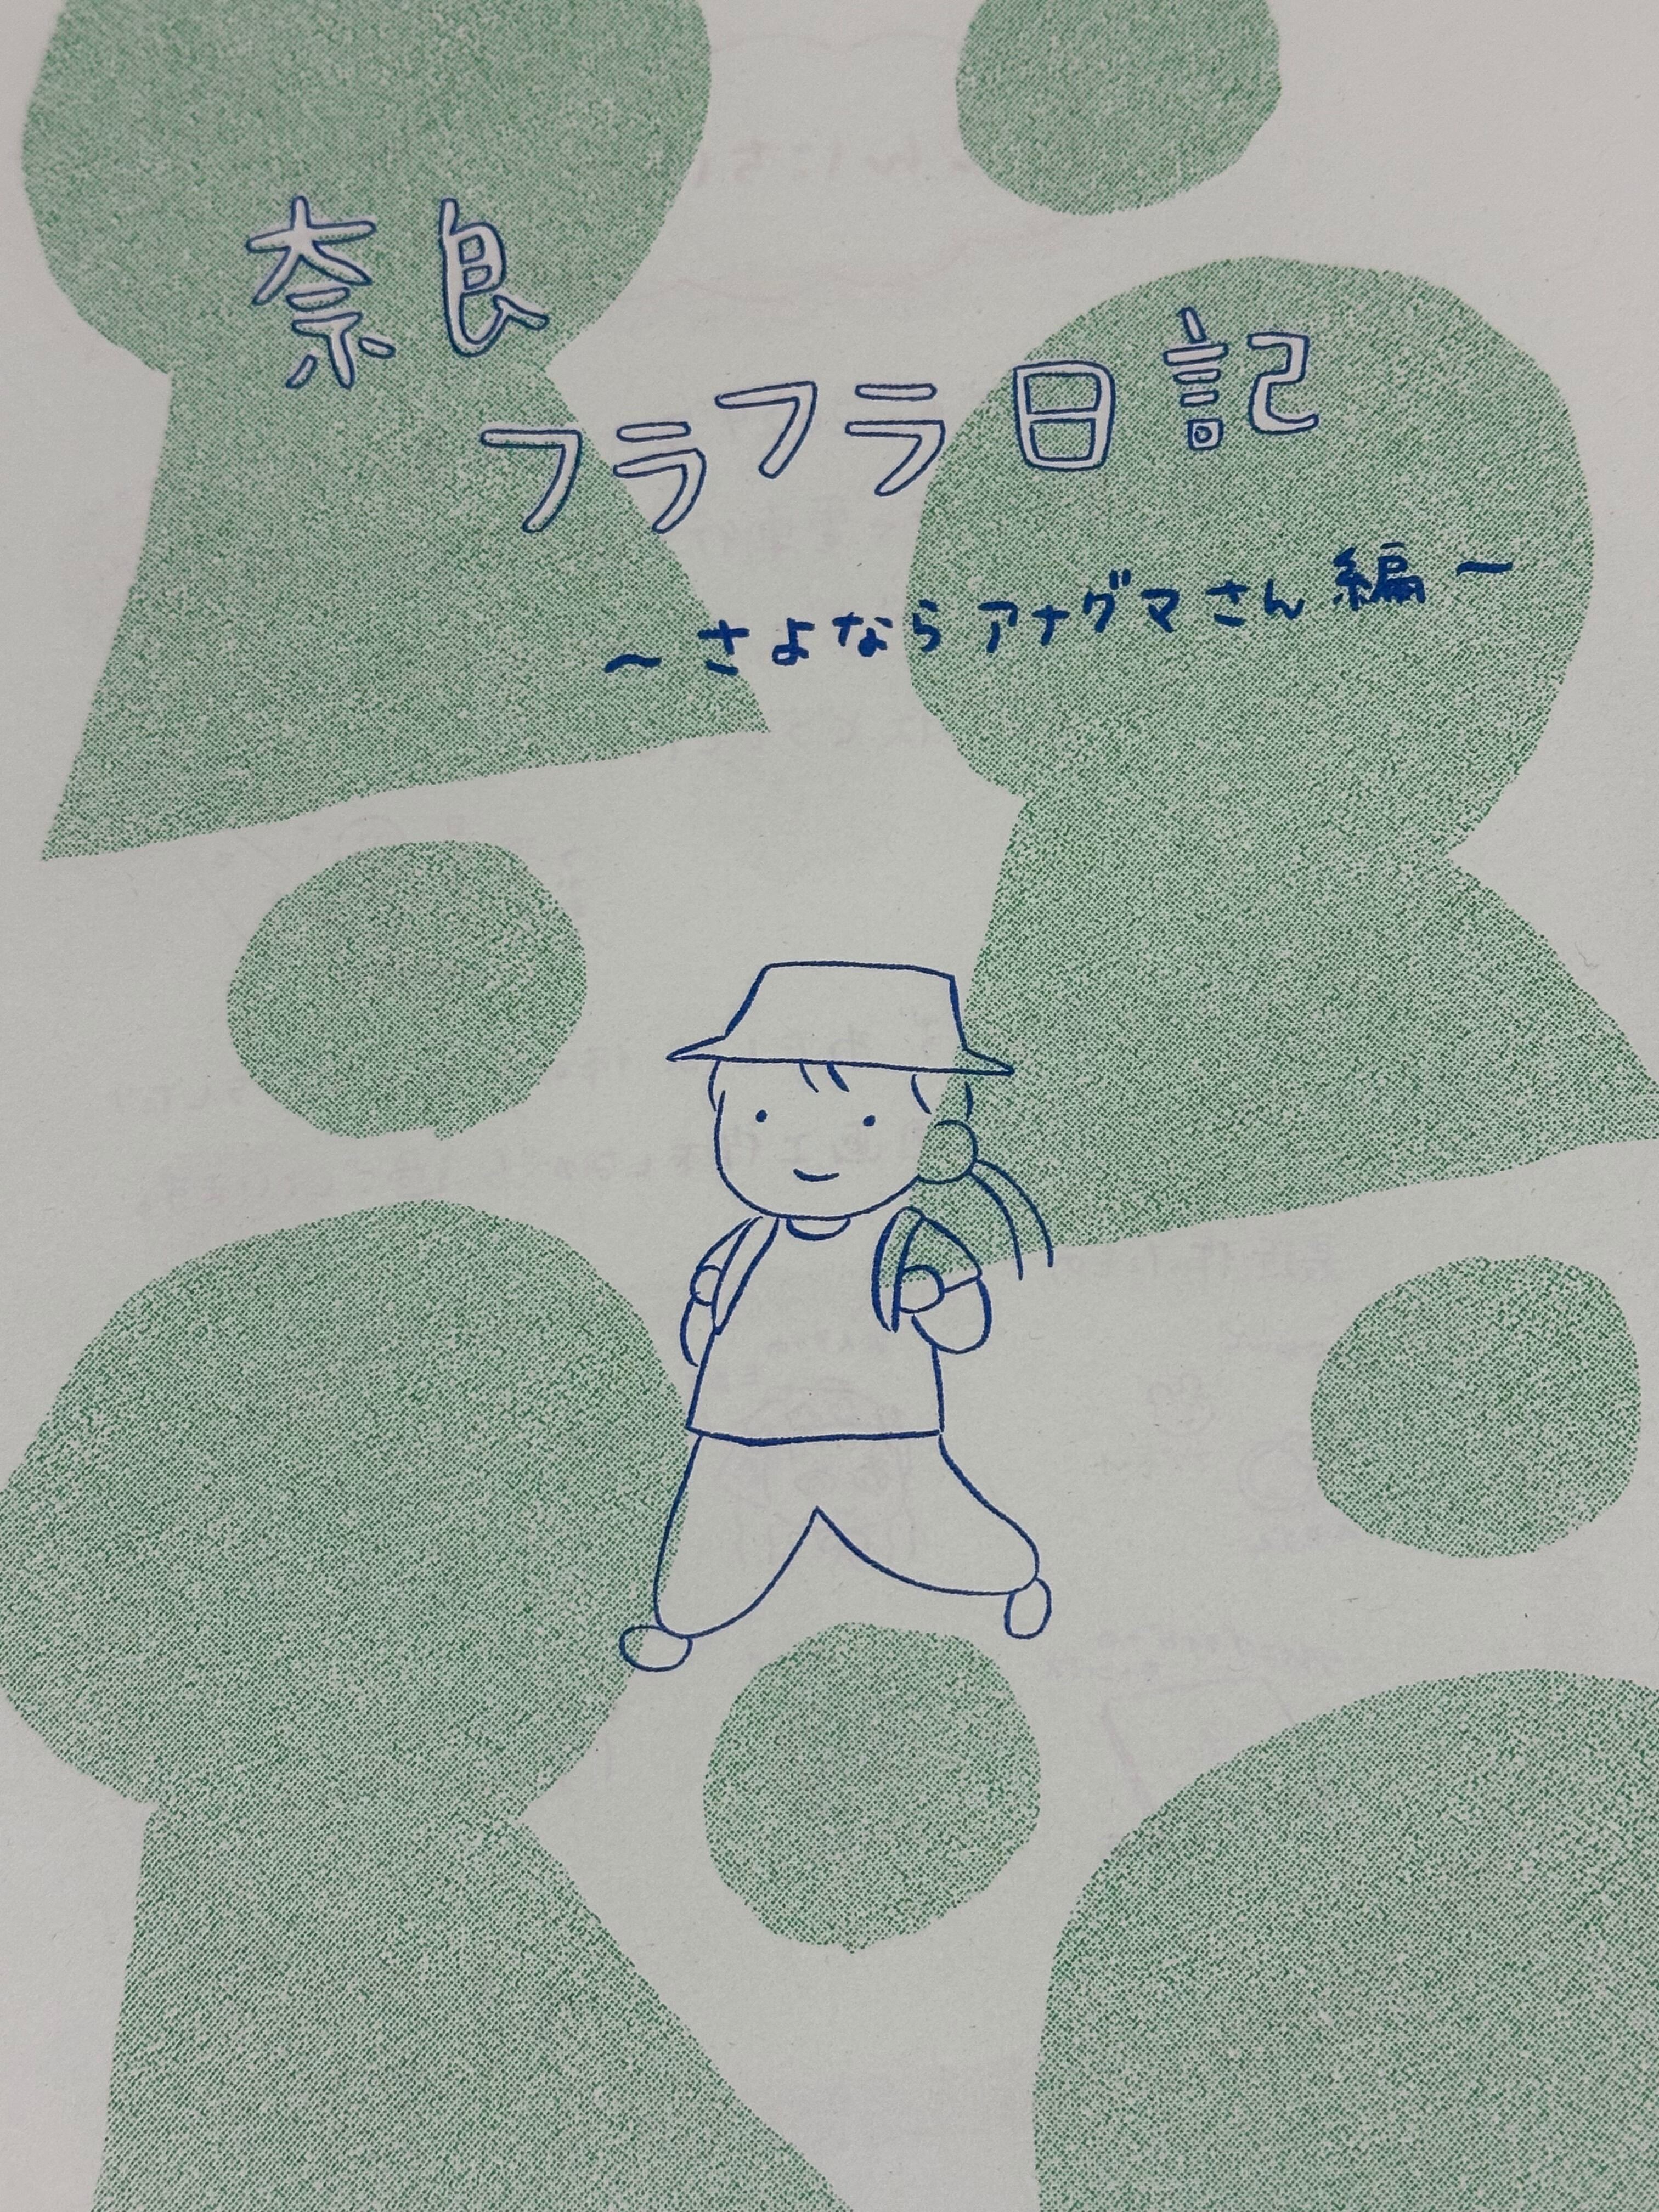 奈良
フラフラ日記
～さよならアナグマさん編～